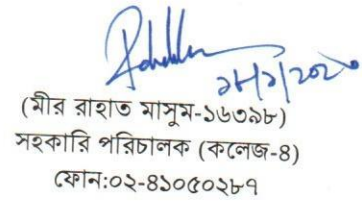 (মীর রাহাত মাসুম-১৬৩৯৮)
সহকারি পরিচালক (কলেজ-৪)
ফোন:০২-৪১০৫০২৮৭